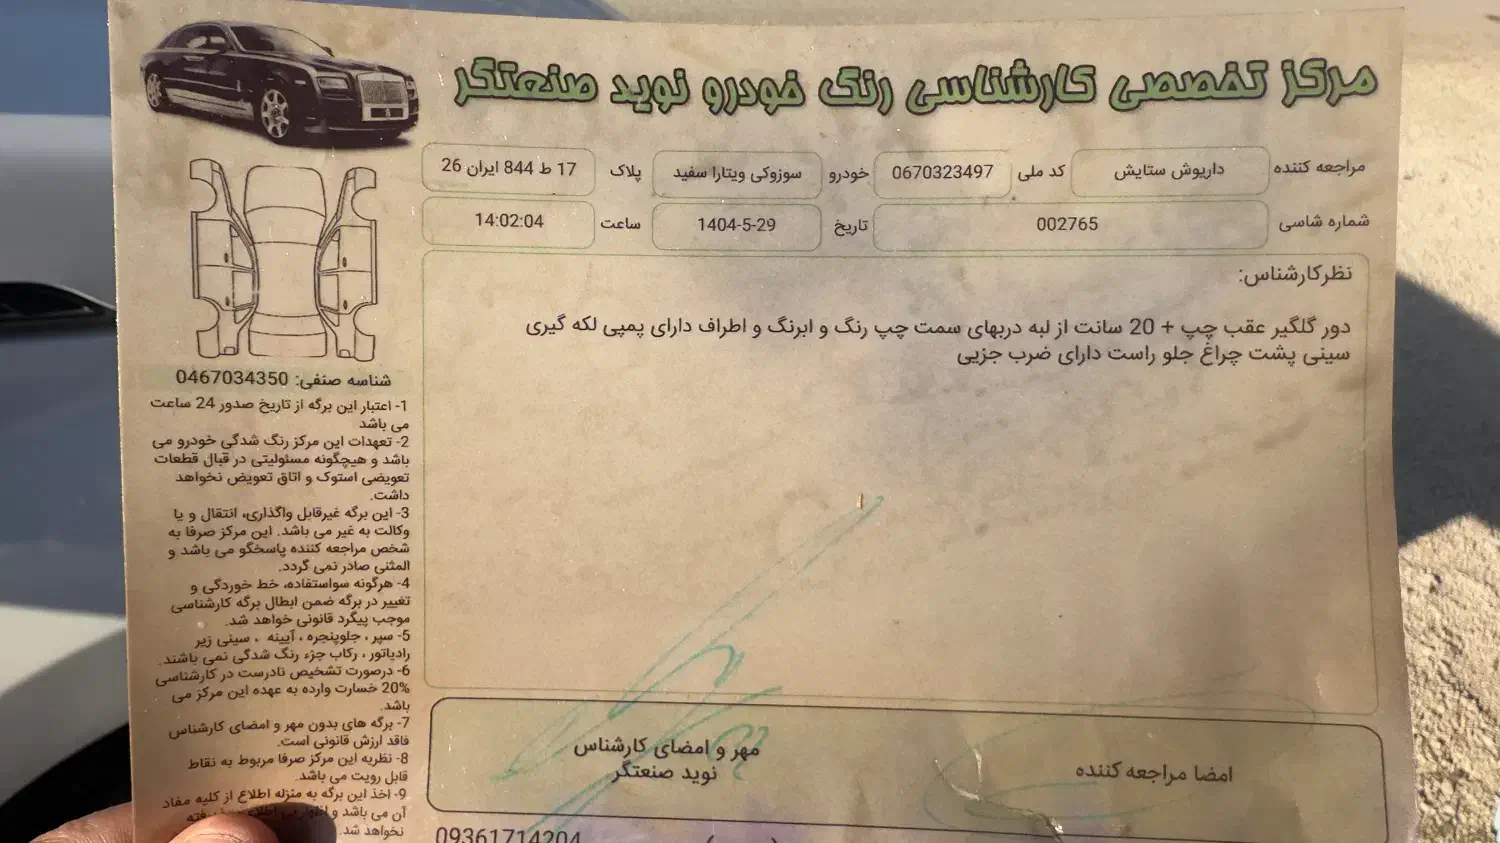 مرکز تخصصی کارشناسی رنگ خودرو نوید صنعتگر
مراجعه کننده داریوش ستایش کد ملی 0670323497 خودرو سوزوکی ویتارا سفید پلاک 17 ط 844 ایران 26
شماره شاسی 002765 تاریخ 1404-5-29 ساعت 14:02:04
نظرکارشناس:
دور گلگیر عقب چپ + 20 سانت از لبه دربهای سمت چپ رنگ و ابرنگ و اطراف دارای پمپی لکه گیری
سینی پشت چراغ جلو راست دارای ضرب جزیی
شناسه صنفی: 0467034350
1- اعتبار این برگه از تاریخ صدور 24 ساعت
می باشد
2- تعهدات این مرکز رنگ شدگی خودرو می
باشد و هیچگونه مسئولیتی در قبال قطعات
تعویضی استوک و اتاق تعویض نخواهد
داشت.
3- این برگه غیرقابل واگذاری، انتقال و یا
وکالت به غیر می باشد. این مرکز صرفا به
شخص مراجعه کننده پاسخگو می باشد و
المثنی صادر نمی گردد.
4- هرگونه سواستفاده، خط خوردگی و
تغییر در برگه ضمن ابطال برگه کارشناسی
موجب پیگرد قانونی خواهد شد.
5- سپر ، جلوپنجره ، آیینه ، سینی زیر
رادیاتور ، رکاب جزء رنگ شدگی نمی باشند.
6- درصورت تشخیص نادرست در کارشناسی
20% خسارت وارده به عهده این مرکز می
باشد.
7- برگه های بدون مهر و امضای کارشناس
فاقد ارزش قانونی است.
8- نظریه این مرکز صرفا مربوط به نقاط
قابل رویت می باشد.
9- اخذ این برگه به منزله اطلاع از کلیه مفاد
آن می باشد و
نخواهد شد.
امضا مراجعه کننده
مهر و امضای کارشناس
نوید صنعتگر
09361714204